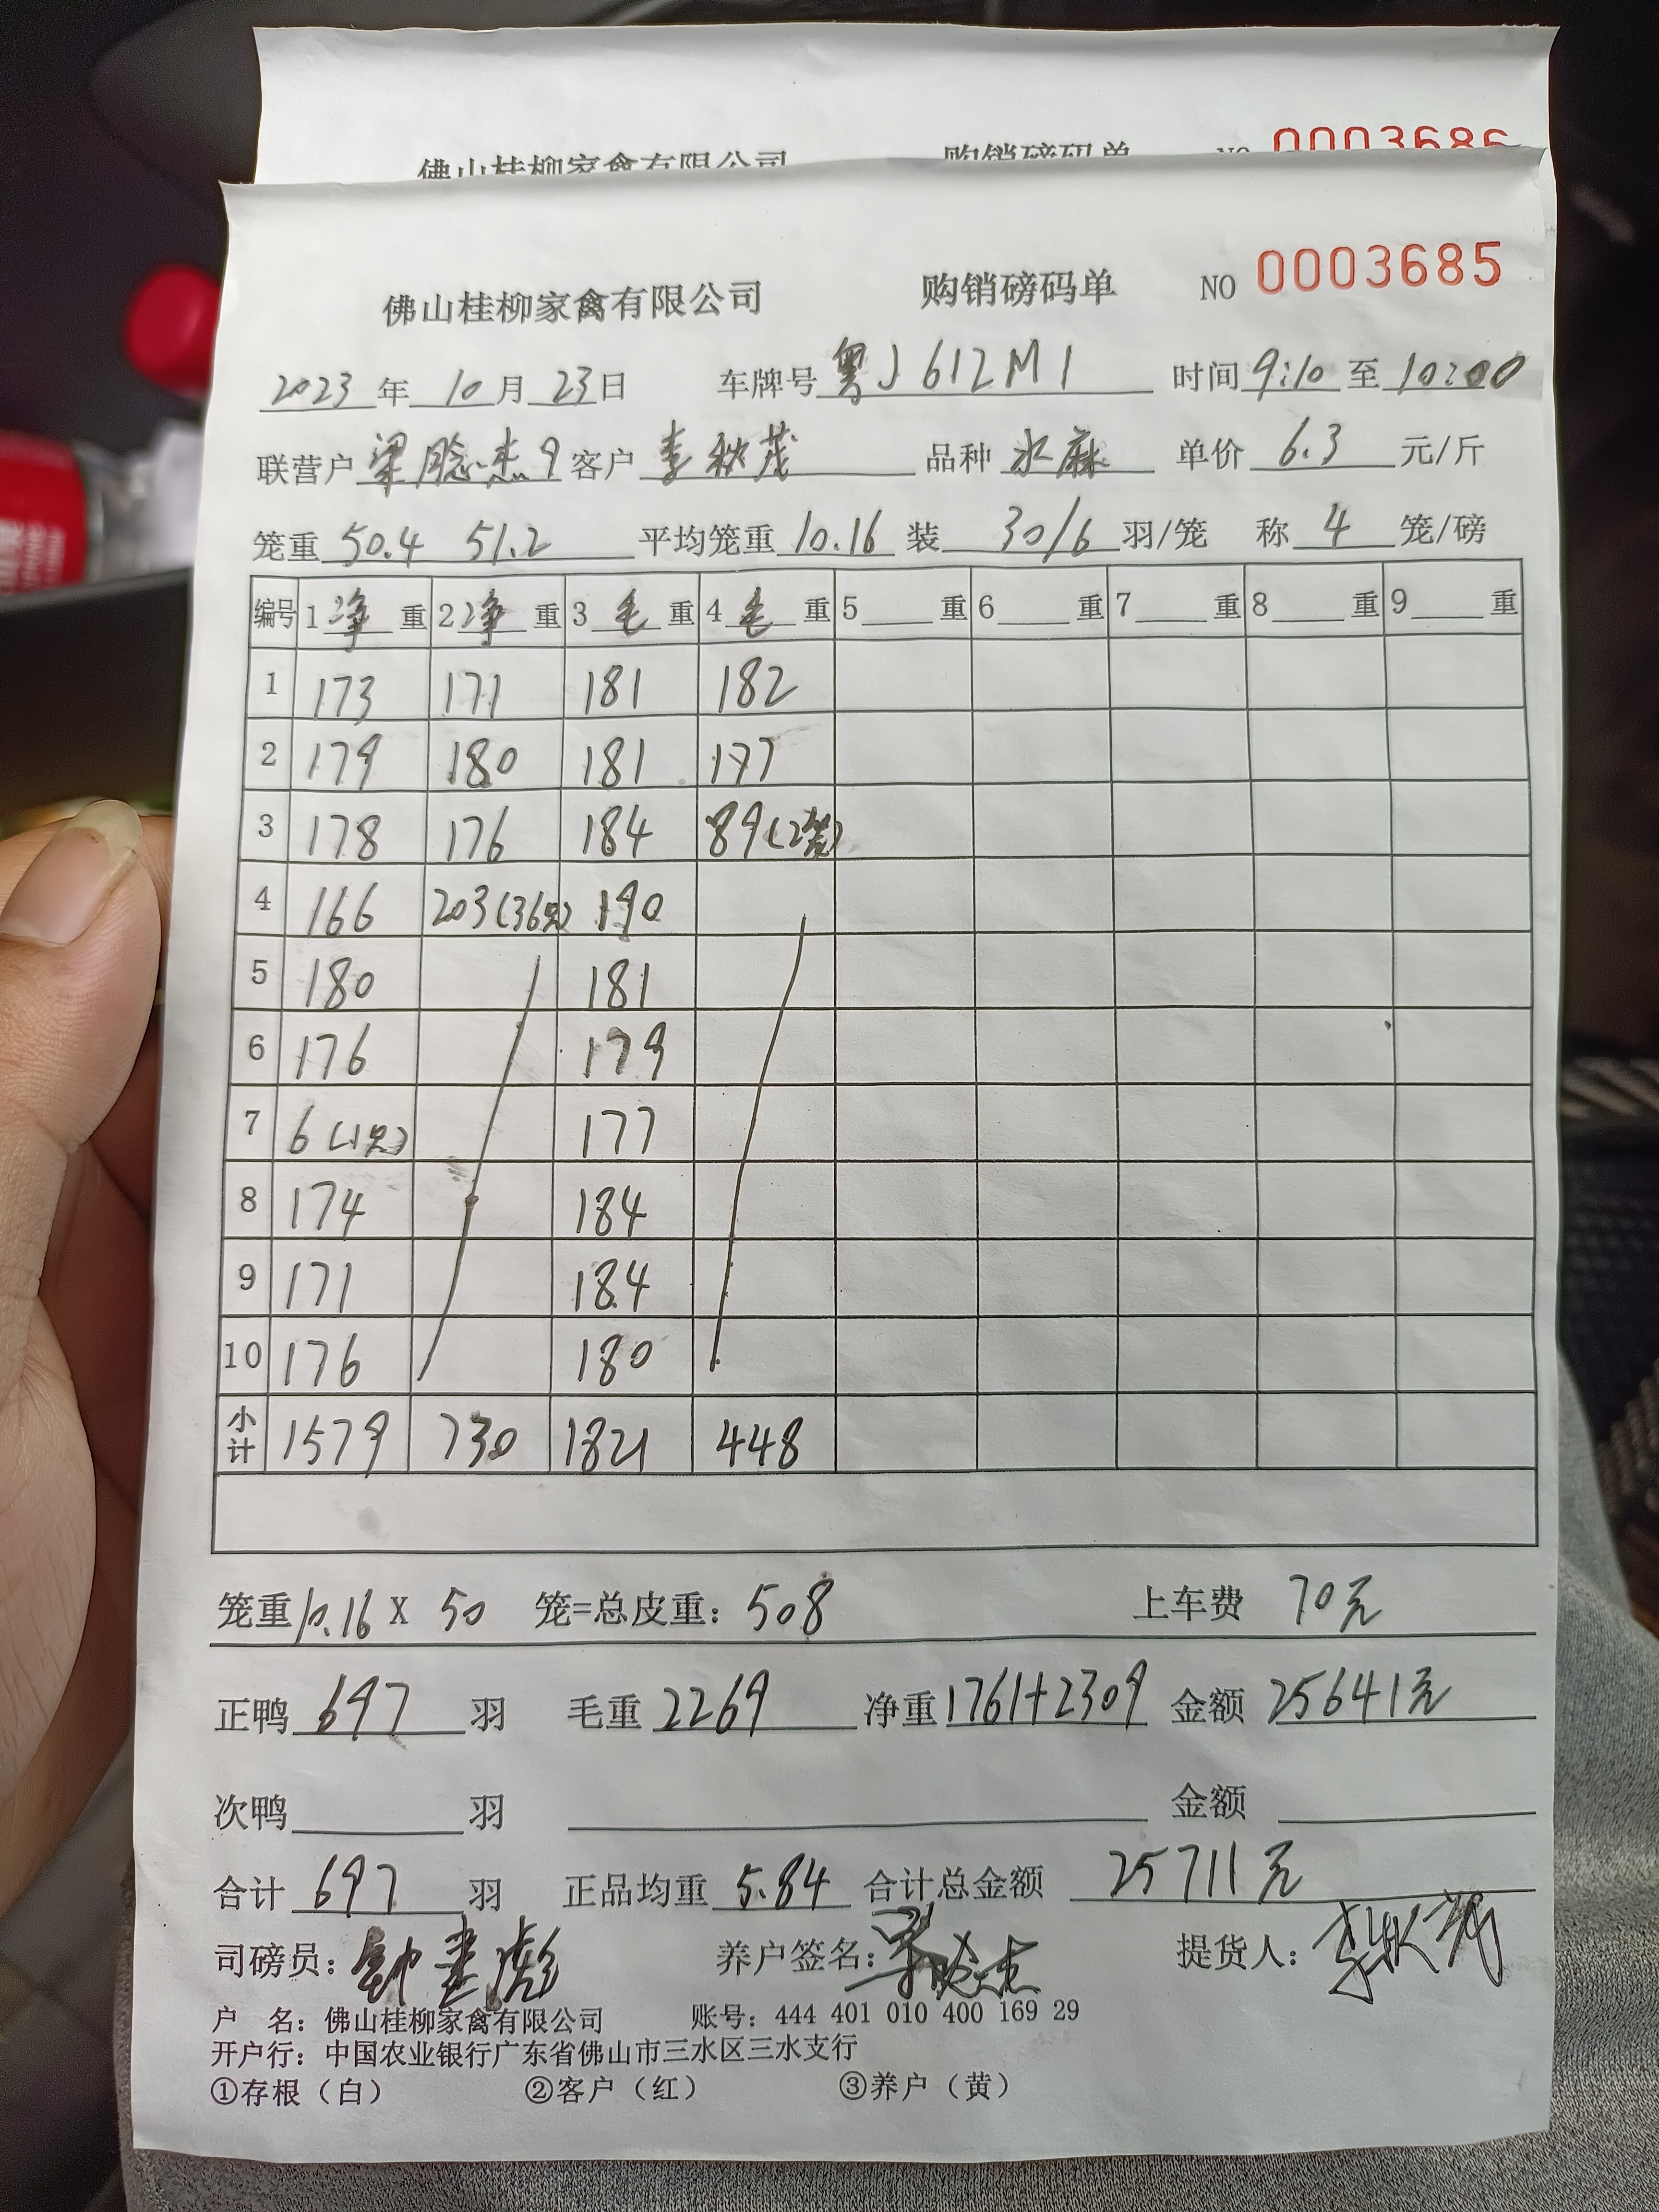 佛山桂柳家禽有限公司 购销磅码单 NO 0003686
佛山桂柳家禽有限公司 购销磅码单 NO 0003685
2023年10月23日 车牌号粤J612M1 时间9:10至10:00
联营户 客户李秋茂 品种水麻 单价6.3元/斤
笼重50.4 51.2 平均笼重10.16 装30/6羽/笼 称4笼/磅
编号 1净重 2净重 3毛重 4毛重 5重 6重 7重 8重 9重
1 173 171 181 182
2 179 180 181 177
3 178 176 184 89(2笼)
4 166 203(36只) 190
5 180 181
6 176 179
7 6(1只) 177
8 174 184
9 171 184
10 176 180
小计 1579 730 1821 448
笼重10.16X50笼=总皮重:508 上车费70元
正鸭697羽 毛重2269 净重1761+2309 金额25641元
次鸭 羽 金额
合计697羽 正品均重5.84 合计总金额25711元
司磅员: 养户签名: 提货人:
户 名:佛山桂柳家禽有限公司 账号:444 401 010 400 169 29
开户行:中国农业银行广东省佛山市三水区三水支行
①存根(白) ②客户(红) ③养户(黄)